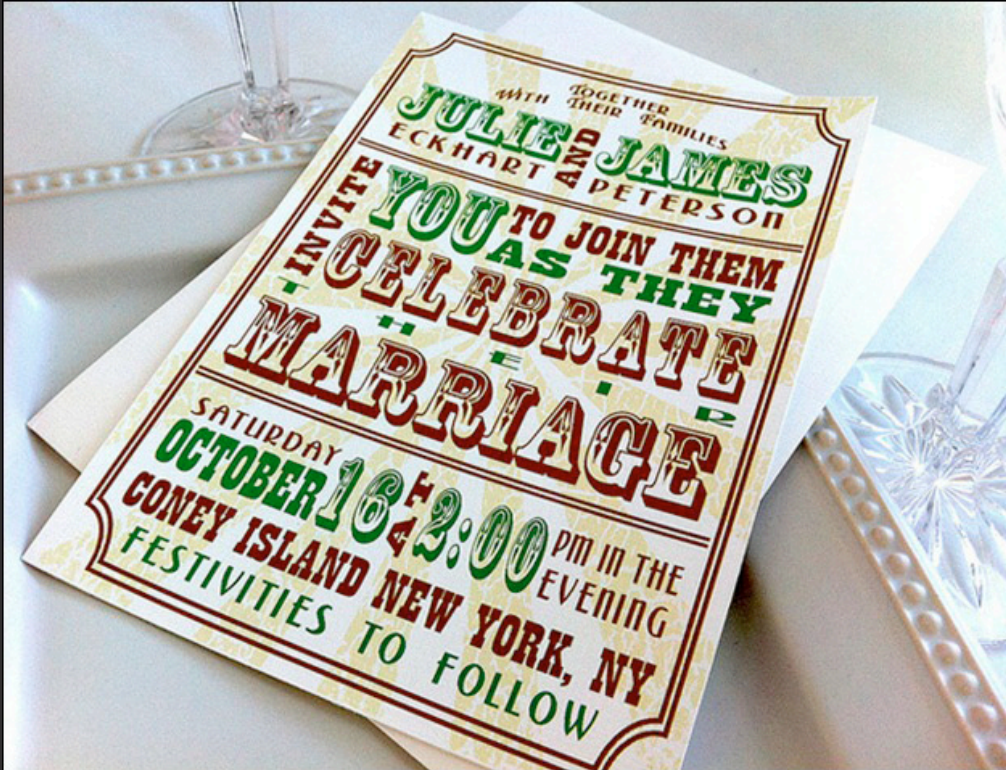 TOGETHER
WITH THEIR FAMILIES
JULIE AND JAMES
ECKHART PETERSON
INVITE YOU TO JOIN THEM
AS THEY
CELEBRATE
THEIR
MARRIAGE
SATURDAY
OCTOBER 16 AT 2:00 PM IN THE
EVENING
CONEY ISLAND NEW YORK, NY
FESTIVITIES TO FOLLOW